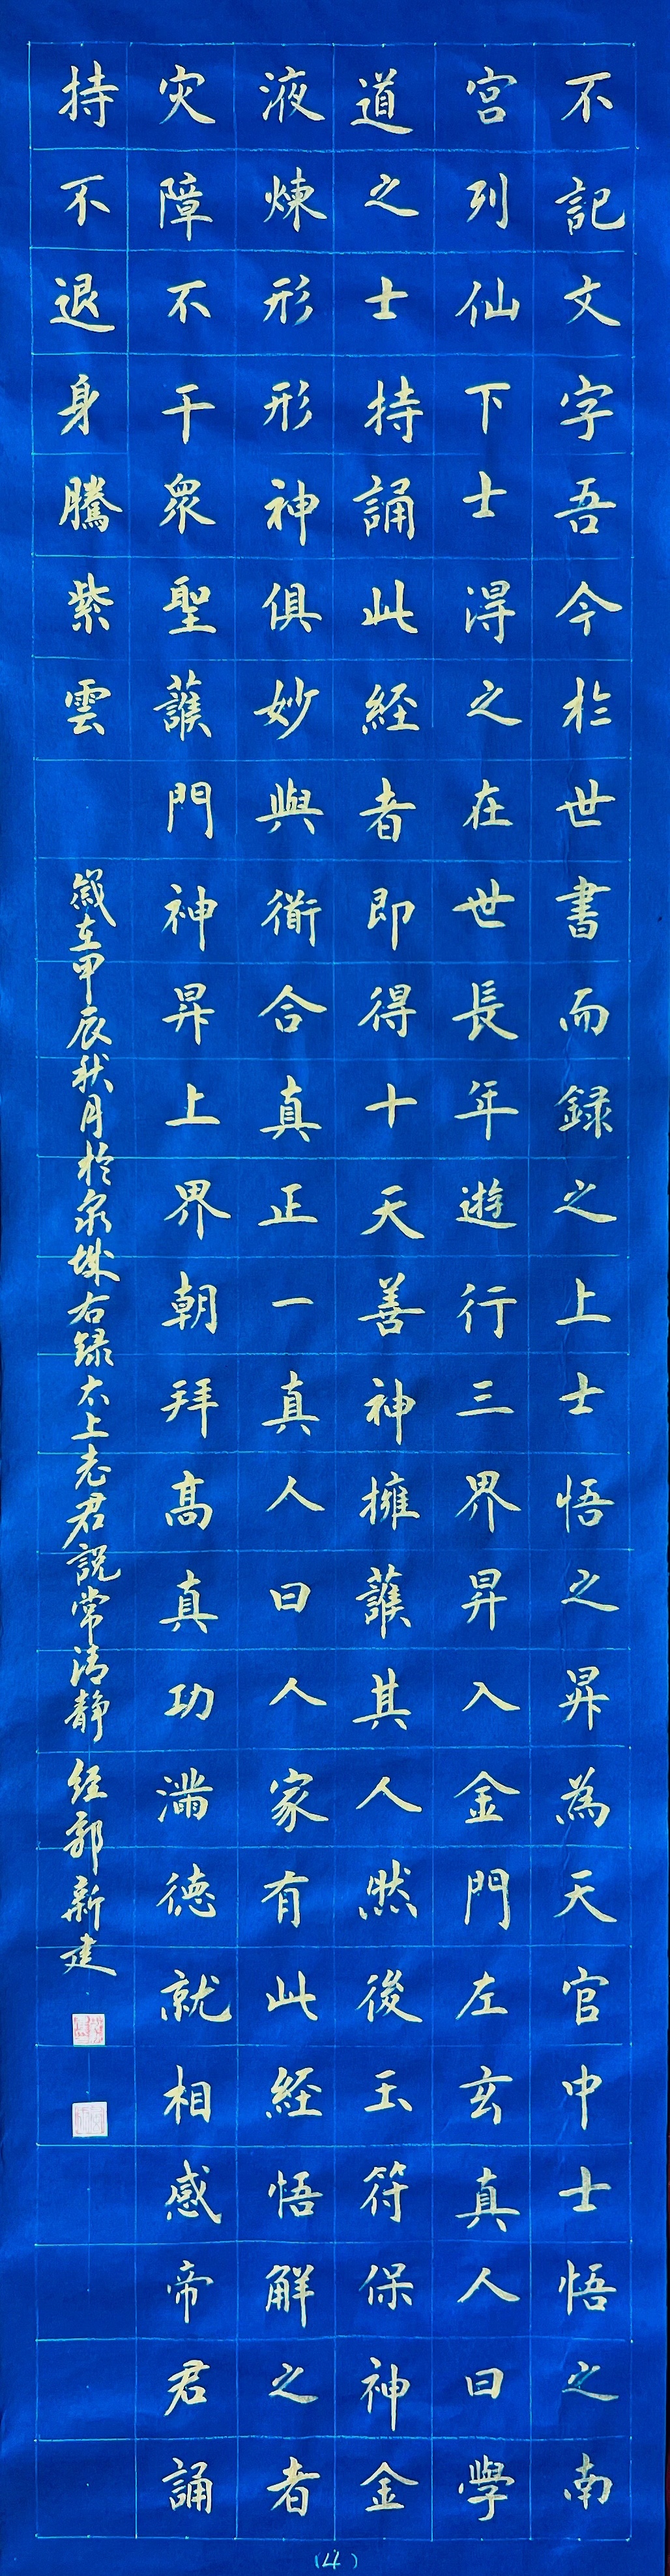 不記文字吾今於世書而録之上士悟之昇為天官中士悟之南
宮列仙下士淂之在世長年遊行三界昇入金門左玄真人曰學
道之士持誦此經者即得十天善神擁護其人然後玉符保神金
液煉形形神俱妙與衟合真正一真人曰人家有此經悟解之者
灾障不干衆聖護門神昇上界朝拜高真功滿德就相感帝君誦
持不退身騰紫雲
歲在甲辰秋月於泉城右録太上老君說常清靜經郭新建
(4)